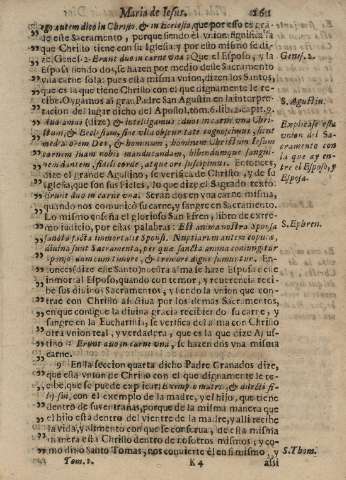 Maria de Iesus. 261
go autem dico in Christo, & in Ecclesia, que por esso es gra-
de este Sacramento, porque siendo el vnion significa la
que Christo tiene con su Iglesia: y por esso mismo se di-
ze, Genes. 2. Erunt duo in carne vna: Que el Esposo, y la
Genes. 2.
Esposa siendo dos, se hazen por medio deste Sacramento
vna carne sola: pues esta misma vnion, dizen los Santos
que es la que tiene Christo con el que dignamente le re-
cibe. Oygamos al gran Padre San Agustin en la interpre-
S. Agustin.
tacion del lugar dicho del Apostol, tom.
duo unus (dize) & intelligamus: duos in carne una Chri-
stum, & Ecclesiam,
mediatorem Dei, & hominum, hominem Christum Iesum
carnem suam nobis manducandam, bibendumque sangui-
nem dantem, fideli corde, atque ore suscipimus. Entonces,
dize el grande Agustino, se verifica de Christo, y de su
Iglesia, que son sus Fieles, lo que dize el Sagrado texto:
Erunt duo in carne una. Serán dos en vna carne misma,
quando nos comunicó su carne, y sangre en Sacramento.
Lo mismo enseña el glorioso San Efren, libro de extre-
mo iudicio, por estas palabras: Est anima nostra Sponsa
S. Ephren.
sancta facta immortalis Sponsi. Nuptiarum autem copula,
diuina sunt Sacramenta, per quæ sancta anima coniungitur
Sponso, dum cum timore, & tremore digne sumuntur. En-
tonces (dize este Santo) nuestra alma se haze Esposa de el
inmortal Esposo, quando con temor, y reuerencia recibe
dignamente los diuinos Sacramentos, y siendo la vnion que con-
trae con Christo afectiua por los demas Sacramentos,
en que consigue la diuina gracia recibiendo su carne, y
sangre en la Eucharistia, se verifica del alma con Christo
otra vnion real, y verdadera, que es la que dize Agus-
tino: Erunt duo in carne una, se hazen dos vna misma
carne.
En la seccion quarta dicho Padre Granados dize,
que esta vnion de Christo con el que dignamente le re-
cibe, que se puede explicar: Exemplo matris, &
con el exemplo de la madre, y el hijo, que tiene
dentro de sus entrañas, porque de la misma manera que
el hijo está dentro del vientre de la madre, y alli recibe
la vida, y alimento con que se conserua, de essa misma
manera está Christo dentro de nosotros mismos, y co-
mo dixo Santo Tomas, nos conuierte él en si mismo, y
S. Thom.
Tom. 2. K 4 assi